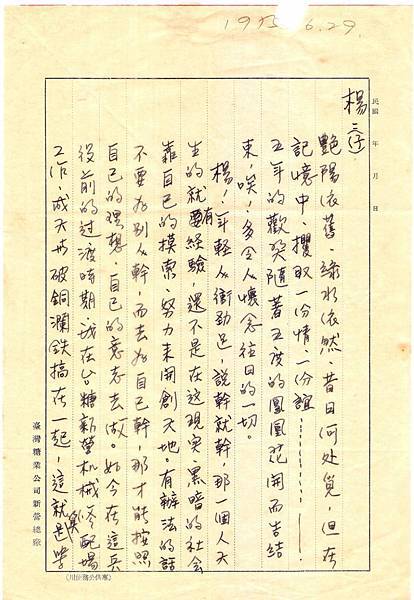 1975.6.29.
民國 年 月 日
楊
艷陽依舊，綠水依然，昔日何处覓，但在
記憶中攫取一份情，一份誼
五年的歡笑隨著五度的鳳凰花開而告結
束，唉，多令人懷念往日的一切。
楊，年輕人衝劲足，說幹就幹，那一個人天
生的就有經驗，還不是在这現实黑暗的社会
靠自己的摸索，努力来開創天地。有辦法的話
不要為別人幹，而去為自己幹，那才能按照
自己的理想，自己的意志去做。如今在這兵
役前的过渡時期，我在台糖新營机械修配場
工作，成天與破銅瀾鉄搞在一起，這就是学
臺灣糖業公司新營總廠
（專供公務使用）